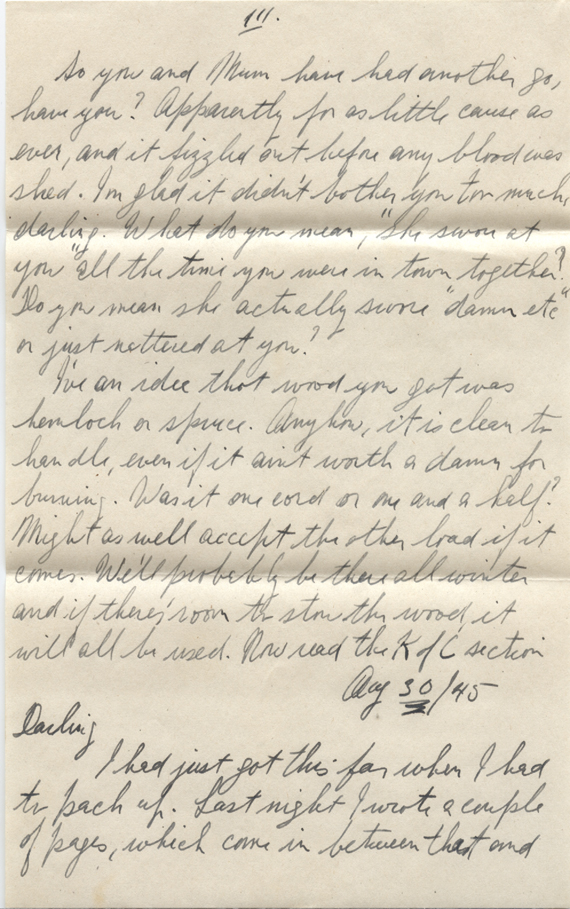 III.
So you and Mum have had another go,
have you? Apparently for as little cause as
ever, and it fizzled out before any blood was
shed. I'm glad it didn't bother you too much,
darling. What do you mean, "she swore at
you" all the time you were in town together?
Do you mean she actually swore "damn etc"
or just nattered at you?
I've an idee that wood you got was
hemlock or spruce. Anyhow, it is clean to
handle, even if it ain't worth a damn for
burning. Was it one cord or one and a half?
Might as well accept the other load if it
comes. We'll probably be there all winter
and if there's room to stow the wood it
will all be used. Now read the K of C section
Aug 30/45
Darling
I had just got this far when I had
to pack up. Last night I wrote a couple
of pages, which come in between that and